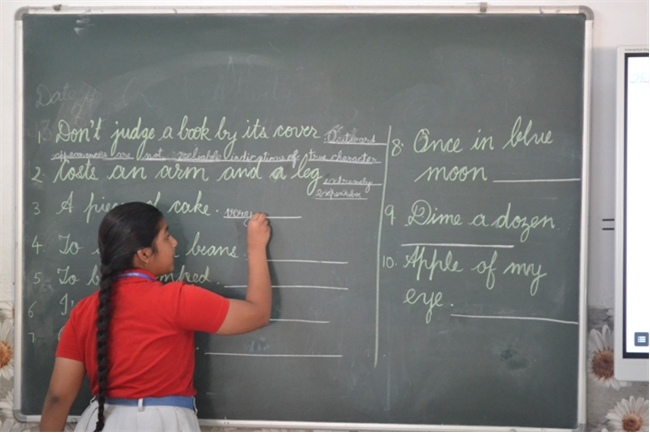 Date
1. Don't judge a book by its cover. Outward
appearances are not reliable indications of true character
2. Costs an arm and a leg extremely
expensive
3 A piece of cake. very
4. To beans.
5. To b
6
7.
8. Once in blue
moon
9. Dime a dozen
10. Apple of my
eye.